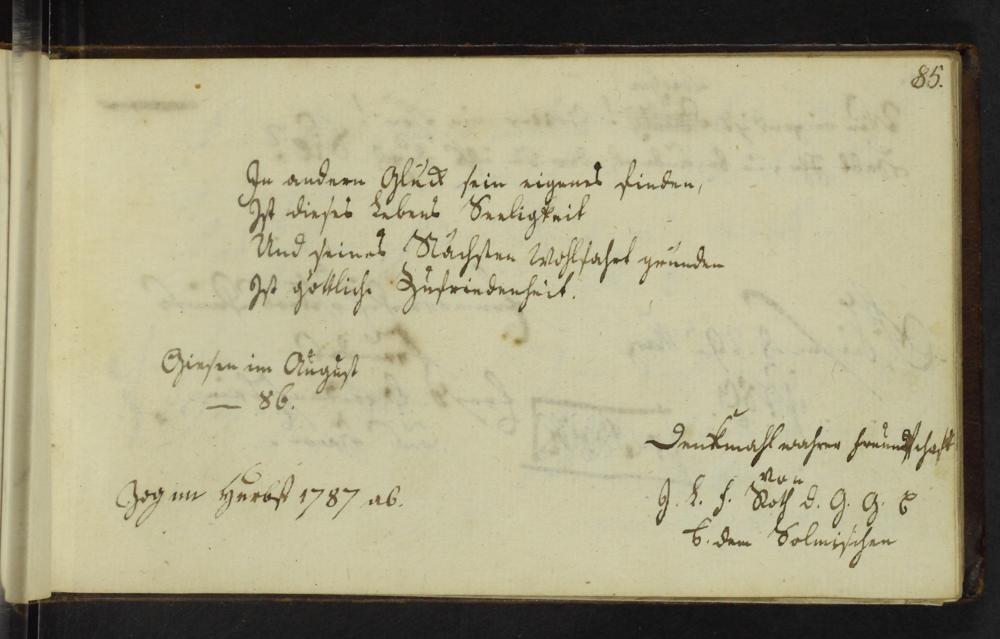 85.
In andern Glück sein eigenes finden,
Ist dieses Lebens Seeligkeit
Und seines Nächsten Wohlfahrt gründen
Ist göttliche Zufriedenheit.
Giesen im August
— 86.
Denkmahl wahrer Freundschaft
von
J. L. F. Roth d. G. G. B
b. dem Solmischen
Zog im Herbst 1787 ab.